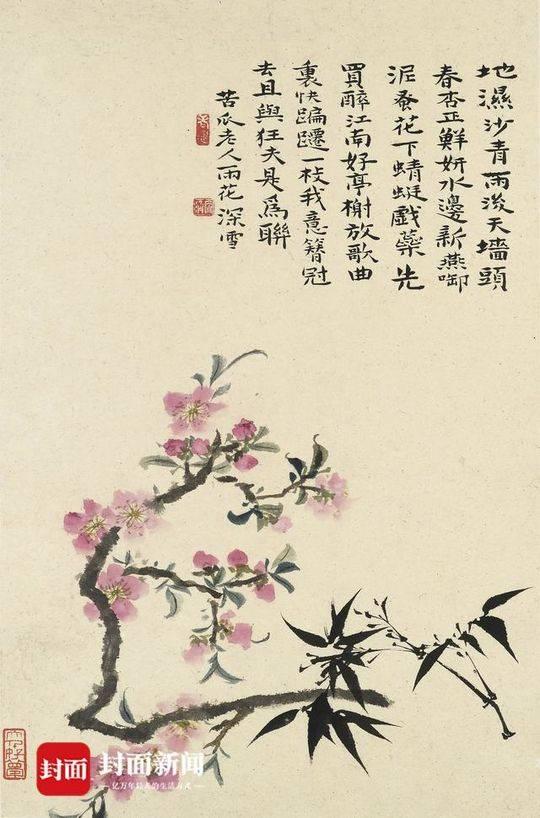 地濕沙青雨後天墻頭
春杏正鮮妍水邊新燕啣
泥蚕花下蜻蜓戲藥先
買醉江南好亭榭放歌曲
裏快蹁躚一枝我意簪冠
去且與狂夫是爲聯
苦瓜老人雨花深雪
封面 封面新闻
亿万年轻人的生活方式